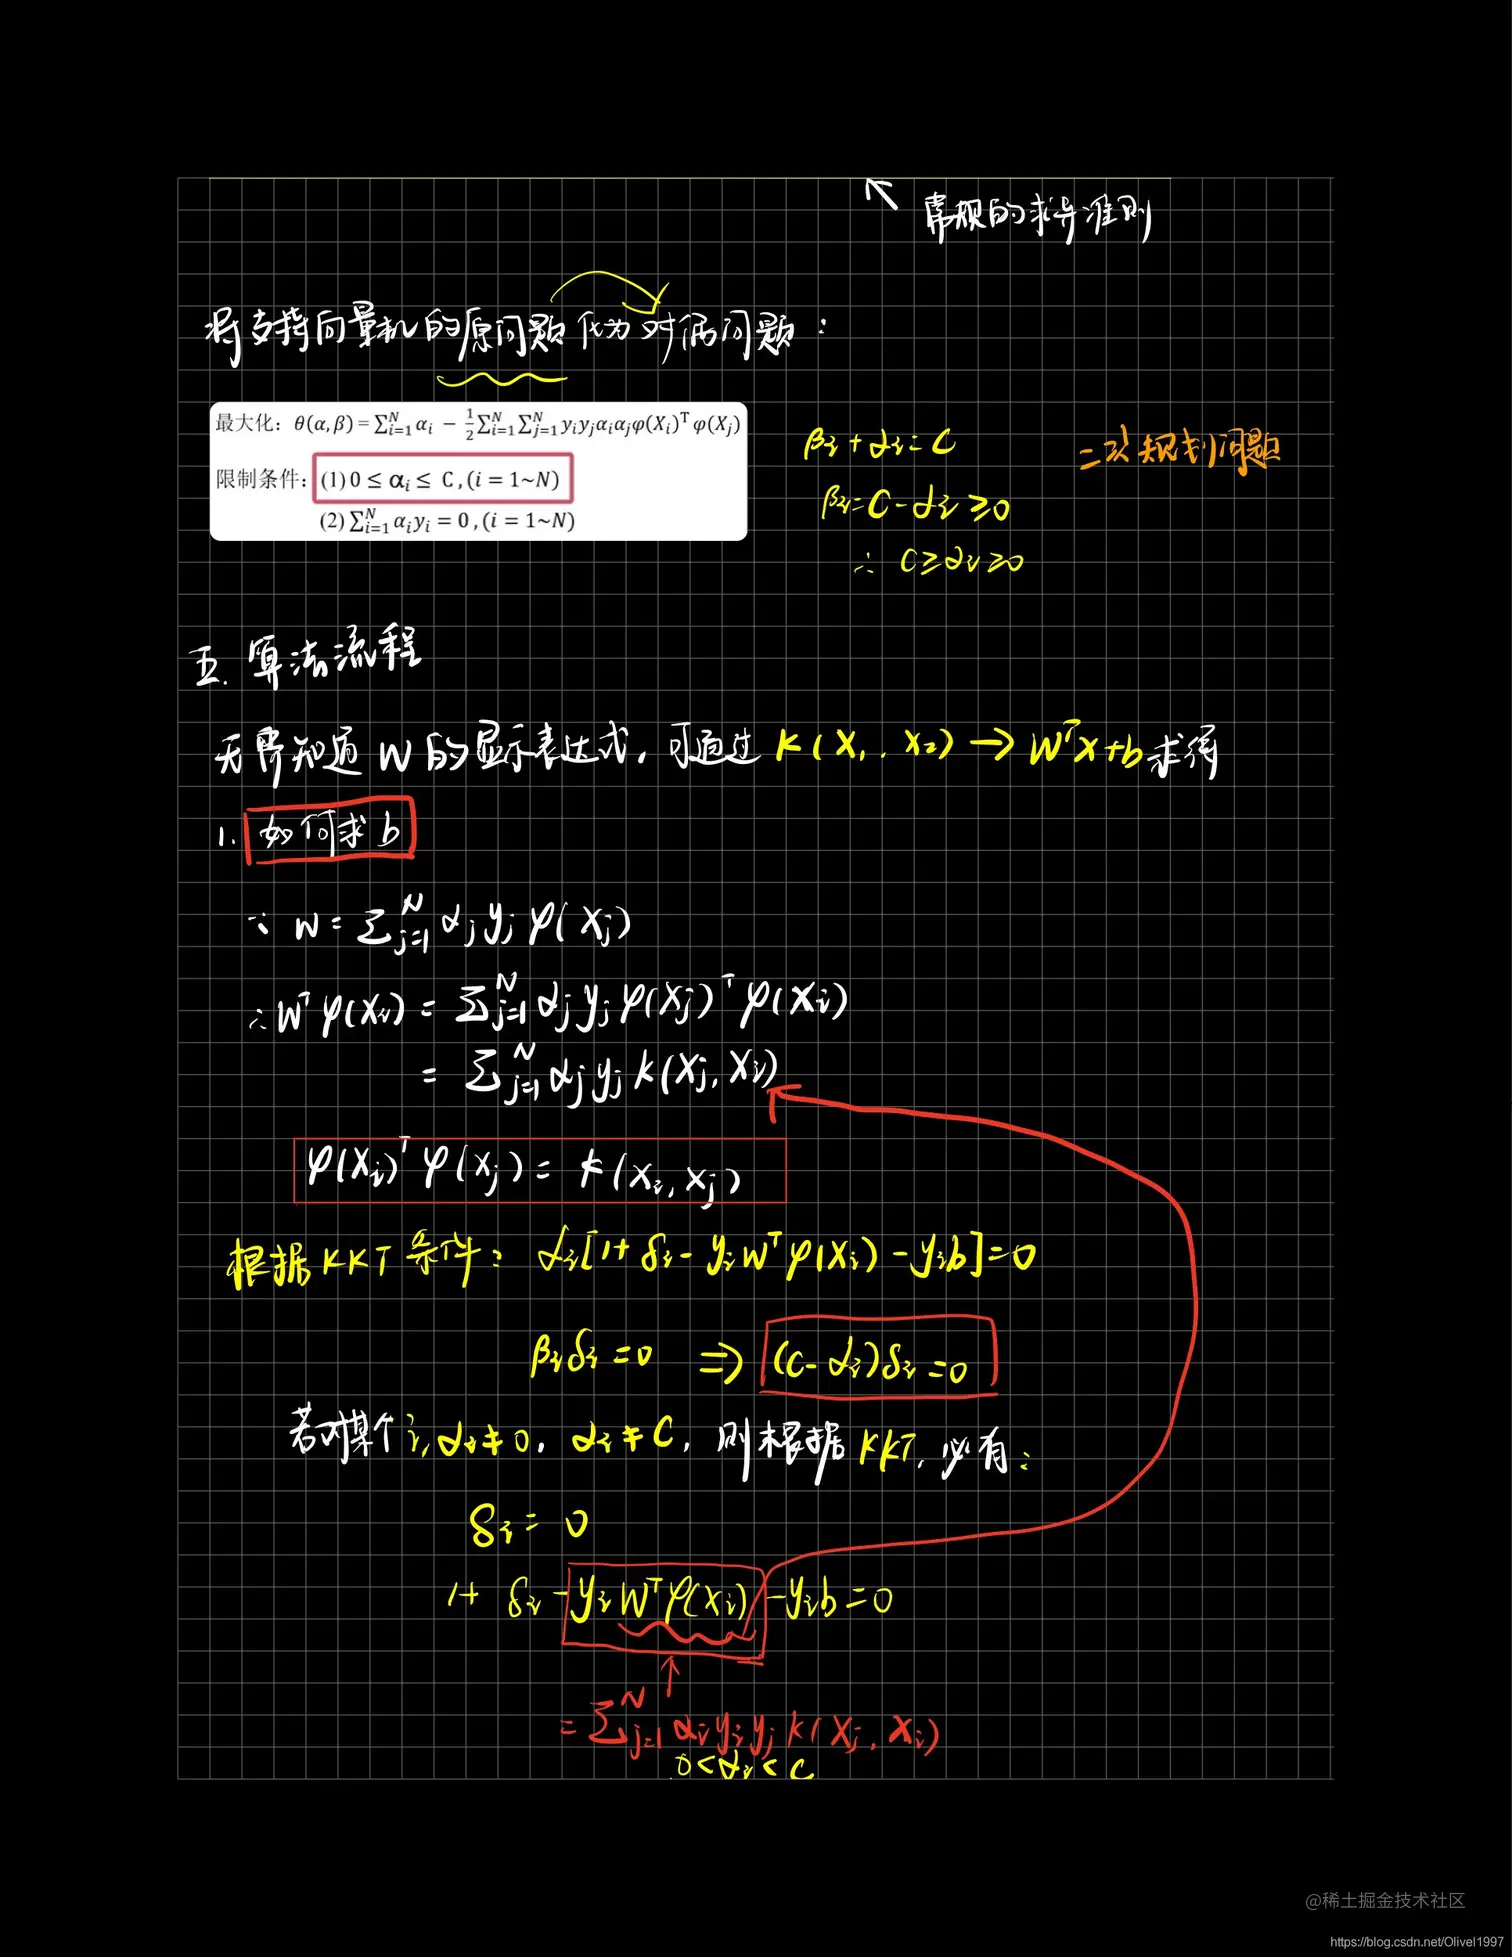 常规的求导准则
将支持向量机的原问题化为对偶问题：
最大化：θ(α,β) = ∑ᵢ₌₁ᴺ αᵢ − ½∑ᵢ₌₁ᴺ∑ⱼ₌₁ᴺ yᵢyⱼαᵢαⱼφ(Xᵢ)ᵀφ(Xⱼ)
限制条件：(1) 0 ≤ αᵢ ≤ C ,(i = 1~N)
(2) ∑ᵢ₌₁ᴺ αᵢyᵢ = 0 ,(i = 1~N)
βᵢ + αᵢ = C
βᵢ = C - αᵢ ≥ 0
∴ C ≥ αᵢ ≥ 0
二次规划问题
五. 算法流程
无需知道 W 的显示表达式，可通过 K(X₁, X₂) → WᵀX+b 求得
1. 如何求 b
∵ W = ∑ⱼ₌₁ᴺ αⱼ yⱼ φ(Xⱼ)
∴ Wᵀφ(Xᵢ) = ∑ⱼ₌₁ᴺ αⱼ yⱼ φ(Xⱼ)ᵀ φ(Xᵢ)
= ∑ⱼ₌₁ᴺ αⱼ yⱼ K(Xⱼ, Xᵢ)
φ(Xᵢ)ᵀ φ(Xⱼ) = K(Xᵢ, Xⱼ)
根据KKT条件：αᵢ[1+δᵢ-yᵢWᵀφ(Xᵢ)-yᵢb]=0
βᵢδᵢ=0 ⇒ (C-αᵢ)δᵢ=0
若对某个 i, αᵢ≠0, αᵢ≠C, 则根据KKT, 必有：
δᵢ = 0
1+ δᵢ - yᵢWᵀφ(Xᵢ) - yᵢb = 0
= ∑ⱼ₌₁ᴺ αᵢ yᵢ yⱼ K(Xⱼ, Xᵢ)
0<αᵢ<C
@稀土掘金技术社区
https://blog.csdn.net/Olivel1997